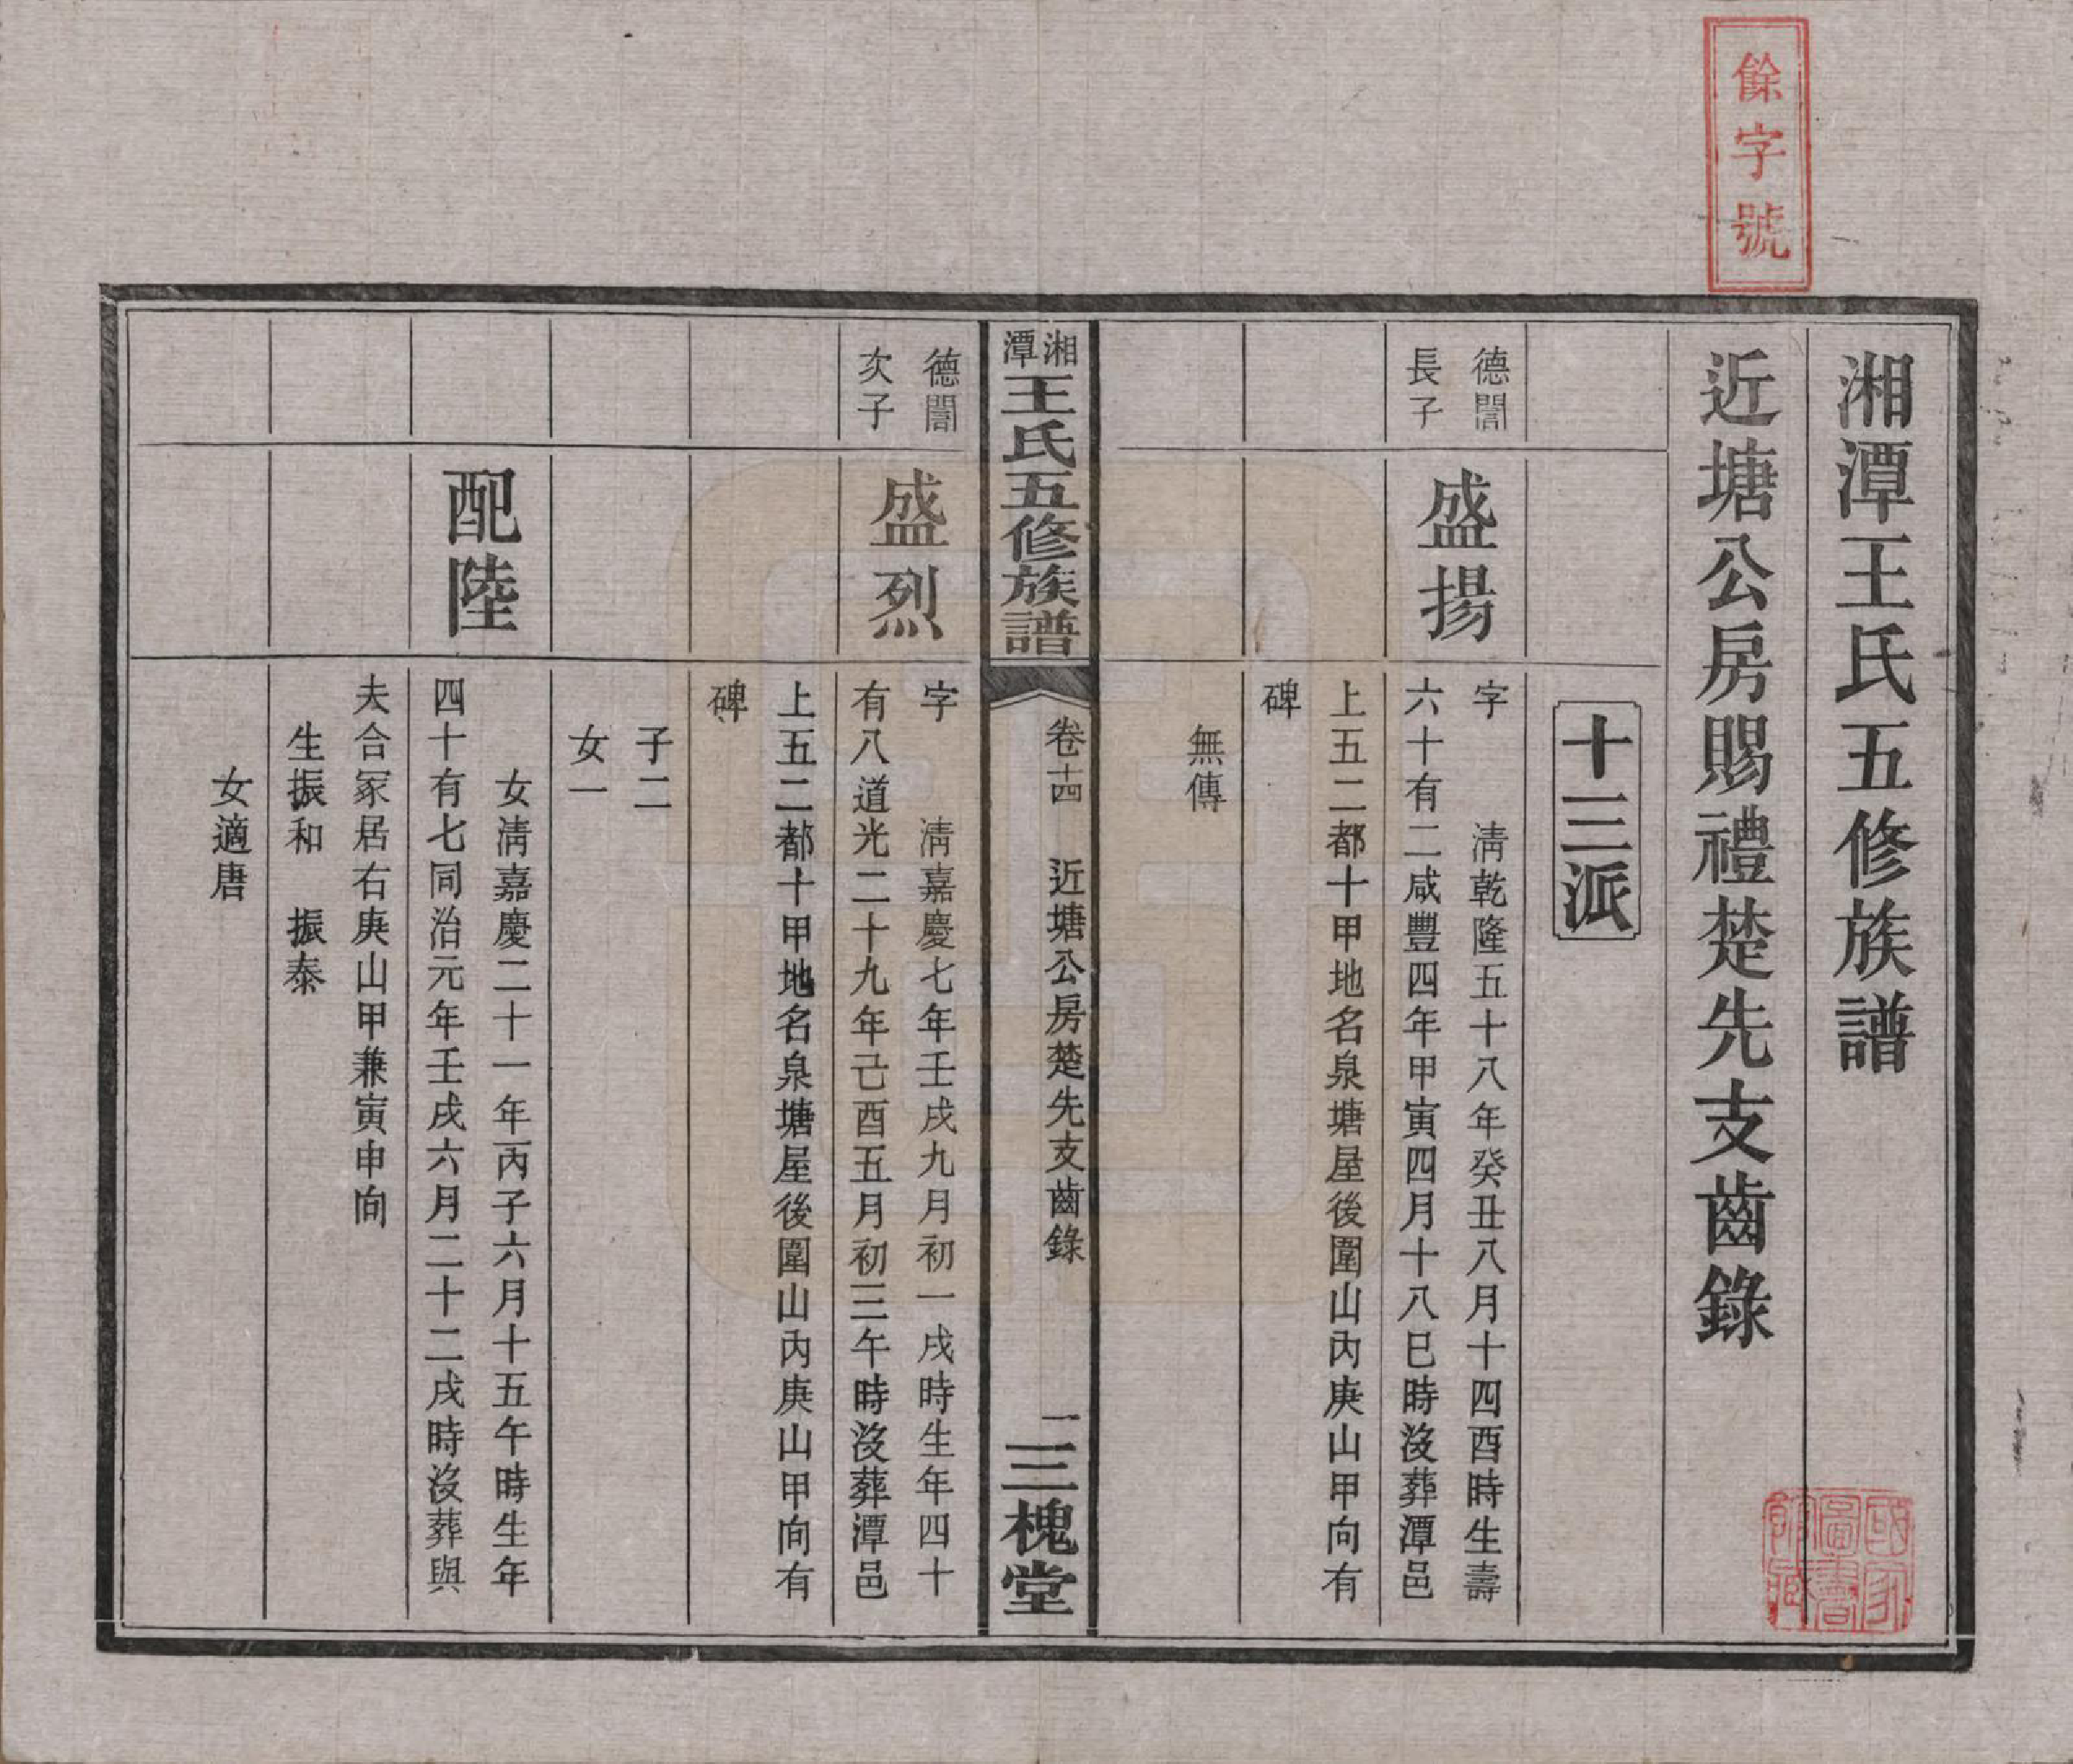 餘字號
湘潭王氏五修族譜
近塘公房賜禮楚先支齒錄
十三派
德誾
長子
盛揚
字　　清乾隆五十八年癸丑八月十四酉時生壽
六十有二咸豐四年甲寅四月十八巳時沒葬潭邑
上五二都十甲地名泉塘屋後圍山內庚山甲向有
碑
無傳
湘潭王氏五修族譜
卷十四　近塘公房楚先支齒錄
一
三槐堂
德誾
次子
盛烈
字　　清嘉慶七年壬戌九月初一戌時生年四十
有八道光二十九年己酉五月初三午時沒葬潭邑
上五二都十甲地名泉塘屋後圍山內庚山甲向有
碑
子二
女一
配陸
女清嘉慶二十一年丙子六月十五午時生年
四十有七同治元年壬戌六月二十二戌時沒葬與
夫合冢居右庚山甲兼寅申向
生振和　振泰
女適唐
國家
圖書
館藏